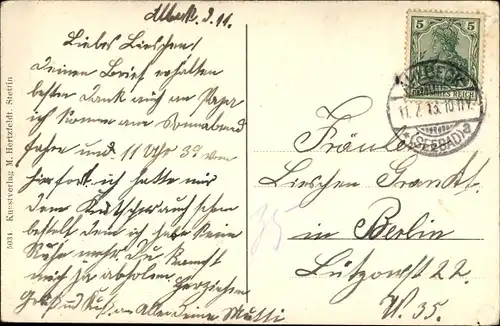 Ahlbeck. d. 11.
Liebes Lieschen!
Deinen Brief erhalten
besten Dank auch an Papa
ich komme am Sonnabend
fahre und 11 Uhr 39 von
hier fort. ich hatte mir
dem Kutscher auch schon
bestellt denn ich habe keine
Ruhe mehr. Du kannst
mich ja abholen
Gruß u. Kuß an Alle Deine Mutti
5031 Kunstverlag M. Hertzfeldt, Stettin
5
DEUTSCHES REICH
AHLBECK
11.7.13. 10-11V.
* (SEEBAD) a
Fräulein
Lieschen
in Berlin
Lützowstr 22.
W. 35.
35